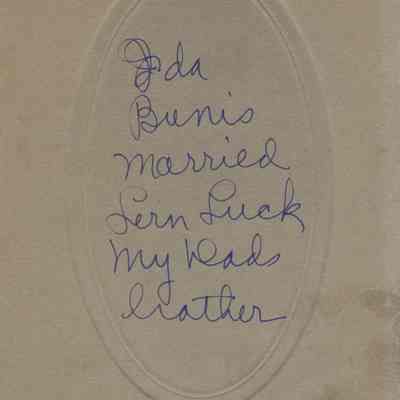 Ida
Bunis
Married
Lern Luck
My Dads
brother